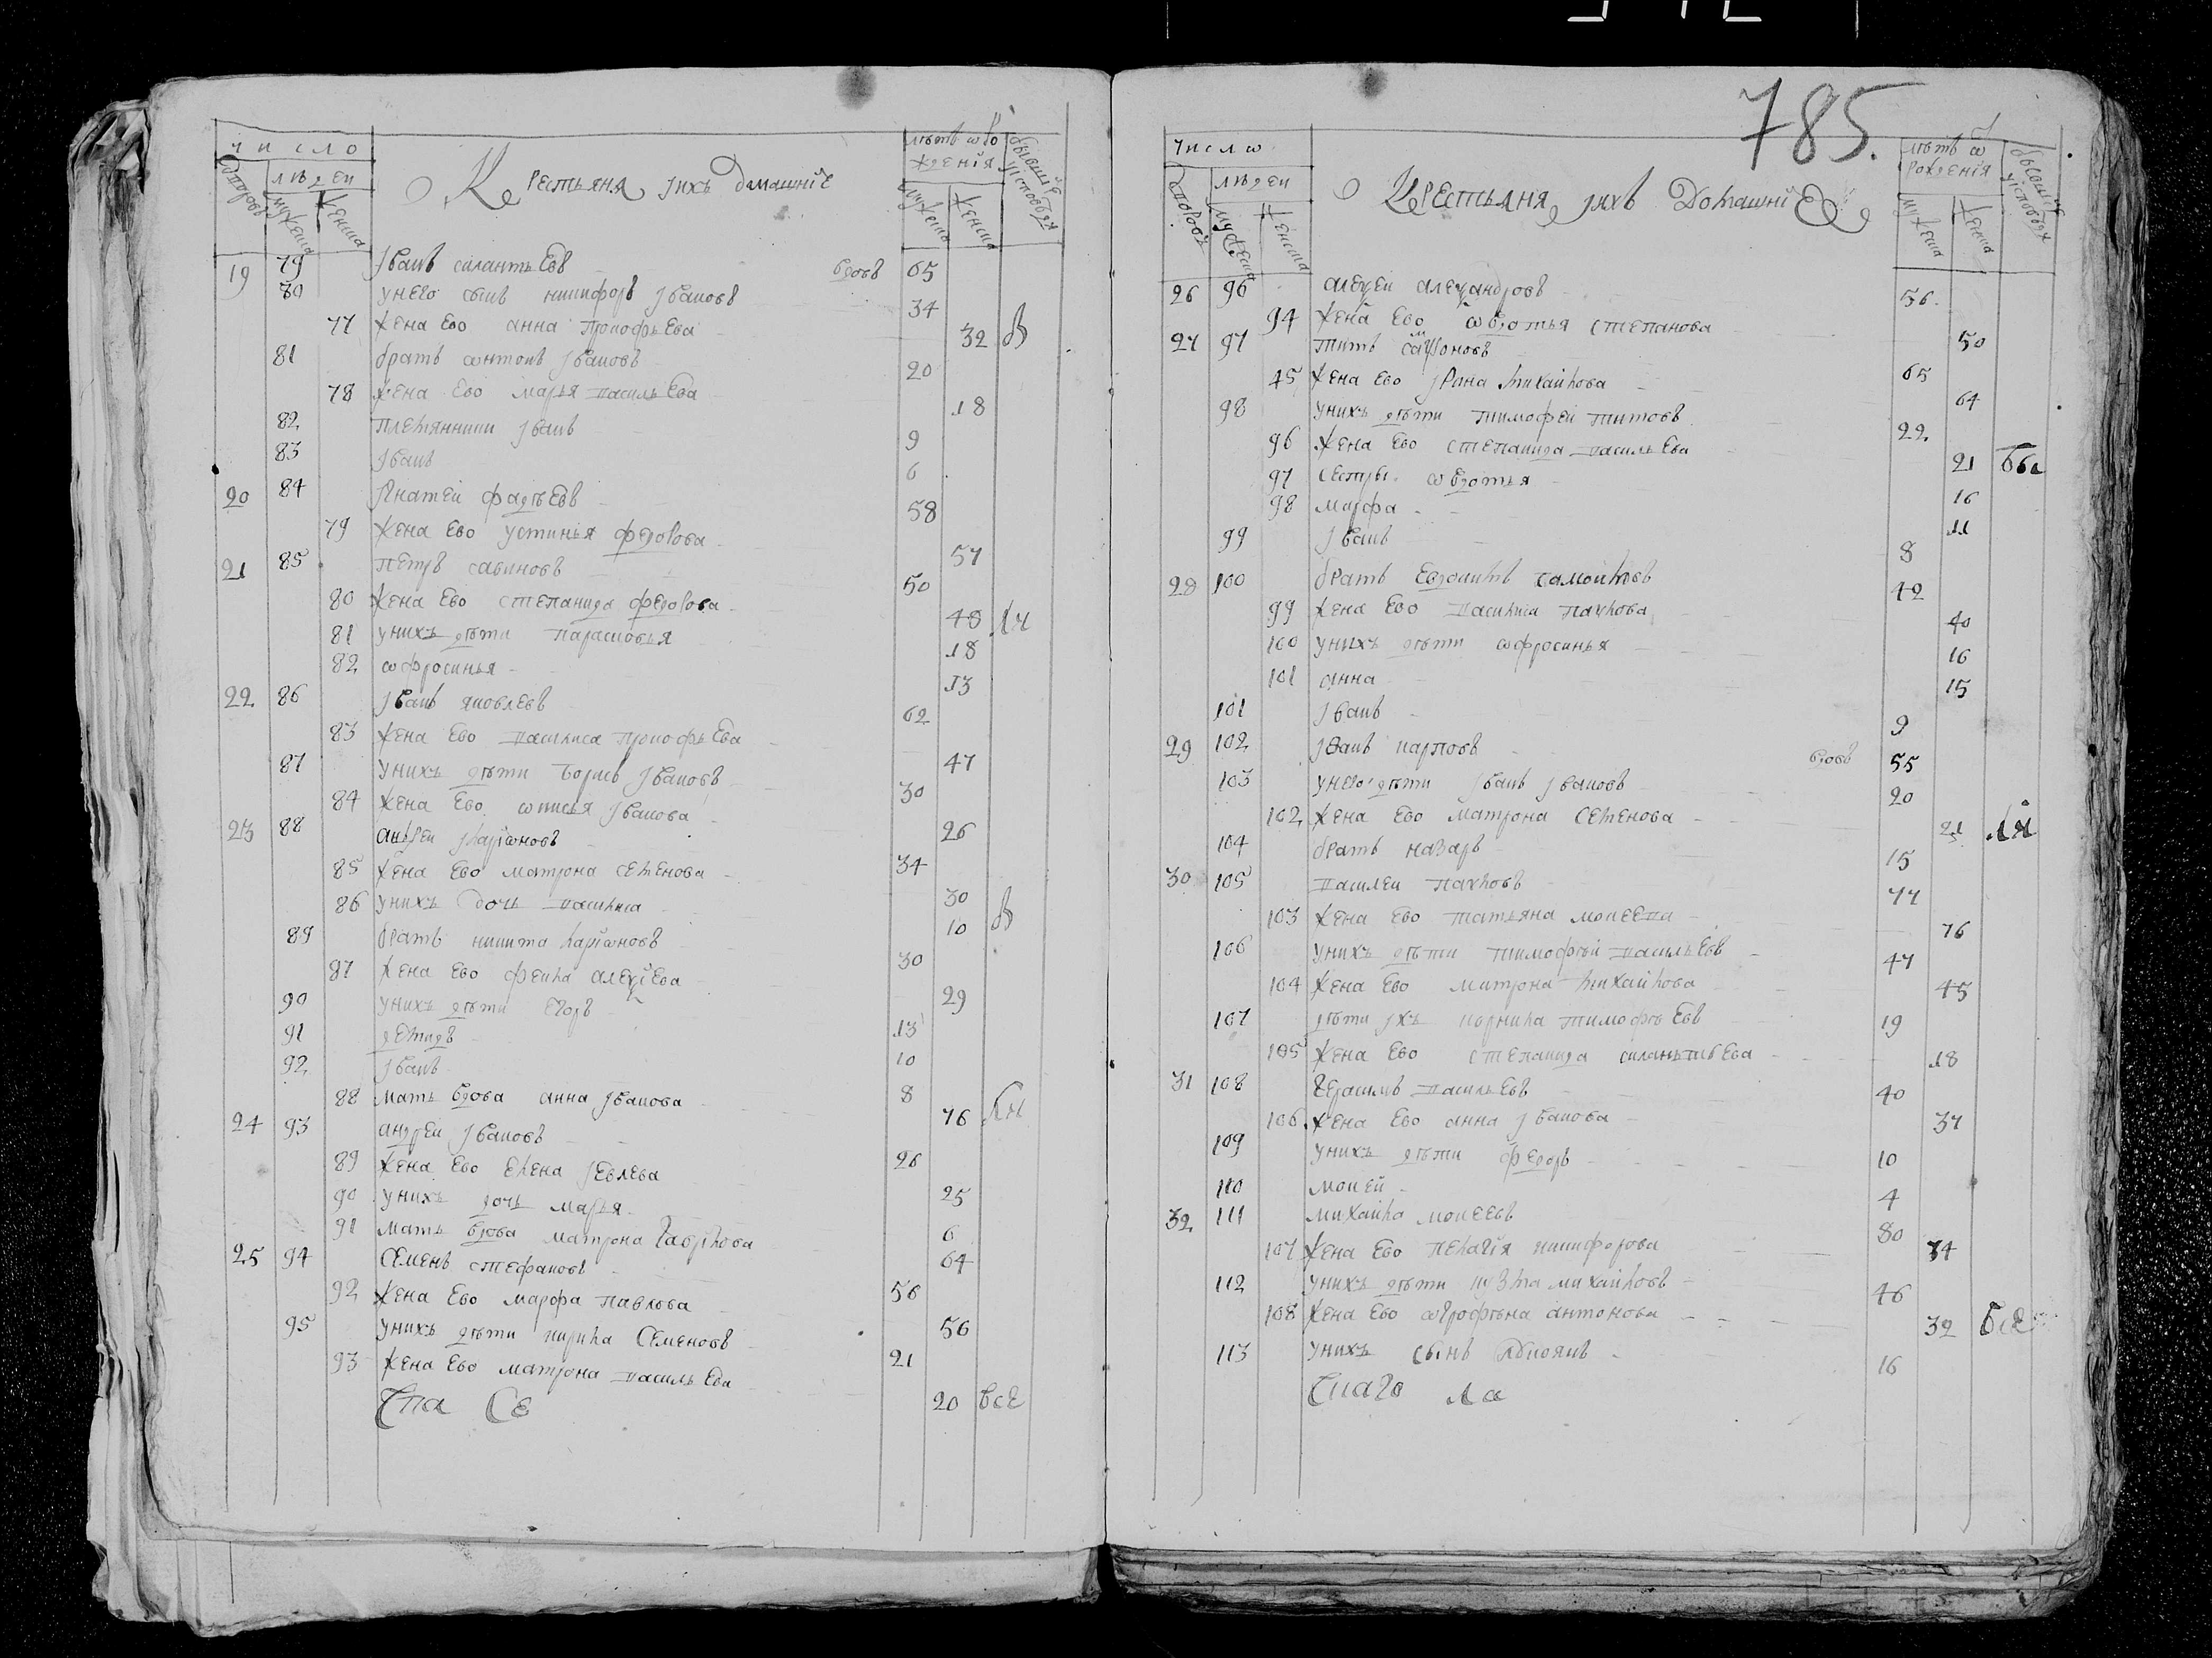 число
дворовъ
людеи
мужеска
женска
Крестьяня и ихъ домашніе
лѣтъ ѿ рождения
мужеска
женска
бывшие у исповѣди
19 79 Иванъ силантьевъ вдовъ 65
80 у него сынъ никифоръ Ивановъ 34
77 жена ево анна прокофьева 32
81 братъ антонъ Ивановъ 20
78 жена ево марья васильева 18
82 племянники Иванъ 9
83 Иванъ 6
20 84 Игнатей фадѣевъ 58
79 жена ево устинья федорова 57
21 85 петръ савиновъ 50
80 жена ево степанида федорова 48
81 у нихъ дѣти парасковья 18
82 ѡфросинья 13
22 86 Иванъ яковлевъ 62
83 жена ево василиса прокофьева 47
87 у нихъ дѣти борисъ Ивановъ 30
84 жена ево Иванова 26
23 88 андреи ларіѡновъ 34
85 жена ево матрона семенова 30
86 у нихъ дочь василиса 10
89 братъ никита ларіѡновъ 30
87 жена ево фекла алеѯіева 29
90 у нихъ дѣти егоръ 13
91 демидъ 10
92 Иванъ 8
88 мать вдова анна Иванова 76
24 93 андреи Ивановъ 26
89 жена ево елена Иевлева 25
90 у нихъ дочь марья 6
91 мать вдова матрона гаврілова 64
25 94 семенъ стефановъ 56
92 жена ево марфа павлова 56
95 у нихъ дѣти кирила семеновъ 21
93 жена ево матрона васильева 20 все
785.
число
дворовъ
людеи
мужеска
женска
Крестьяня и ихъ Домашние
лѣтъ ѿ рожденія
мужеска
женска
бывшие у исповѣди
26 96 алеѯеи алеѯандровъ 56
94 жена ево ѡвдотья степанова 50
27 97 титъ самсоновъ 65
95 жена ево Ирина михаилова 64
98 у нихъ дѣти тимофеи титовъ 22
96 жена ево степанида васильева 21
97 сестры ѡвдотья 16
98 марфа 11
99 Иванъ 8
28 100 братъ евдокимъ 42
99 жена ево василиса павлова 40
100 у нихъ дѣти ѡфросинья 16
101 анна 15
101 Иванъ 9
29 102 Иванъ карповъ вдовъ 55
103 у него дѣти Иванъ Ивановъ 20
102 жена ево матрона семенова 21
104 братъ назаръ 15
30 105 василеи павловъ 77
103 жена ево татьяна моисеева 76
106 у нихъ дѣти тимофѣи васильевъ 47
104 жена ево матрона михаилова 45
107 дѣти ихъ корнила тимофѣевъ 19
105 жена ево степанида силантьева 18
31 108 герасимъ васильевъ 40
106 жена ево анна Иванова 37
109 у нихъ дѣти федоръ 10
110 моисеи 4
32 111 михаила моисеевъ 80
107 жена ево пелагія никифорова 74
112 у нихъ дѣти кузма михаиловъ 46
108 жена ево ѡгрофѣна антонова 32 все
113 у нихъ сынъ 16